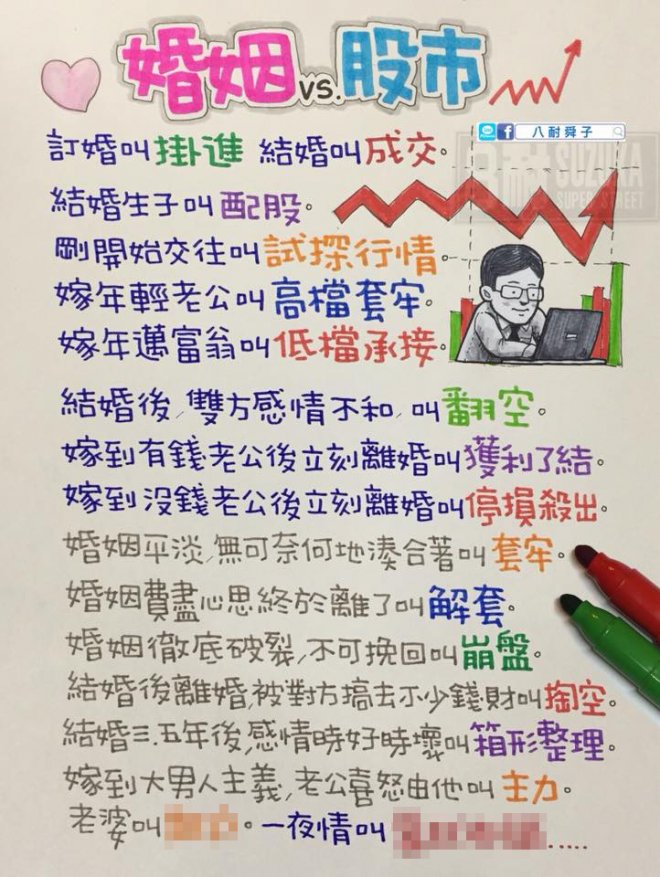 婚姻vs.股市
八耐舜子
SUZUKA
SUPER STREET
訂婚叫掛進 結婚叫成交。
結婚生子叫配股。
剛開始交往叫試探行情。
嫁年輕老公叫高檔套牢。
嫁年邁富翁叫低檔承接。
結婚後,雙方感情不和,叫翻空。
嫁到有錢老公後立刻離婚叫獲利了結。
嫁到沒錢老公後立刻離婚叫停損殺出。
婚姻平淡,無可奈何地湊合著叫套牢。
婚姻費盡心思終於離了叫解套。
婚姻徹底破裂,不可挽回叫崩盤。
結婚後離婚,被對方搞去不少錢財叫掏空。
結婚三.五年後,感情時好時壞叫箱形整理。
嫁到大男人主義,老公喜怒由他叫主力。
老婆叫。一夜情叫.....